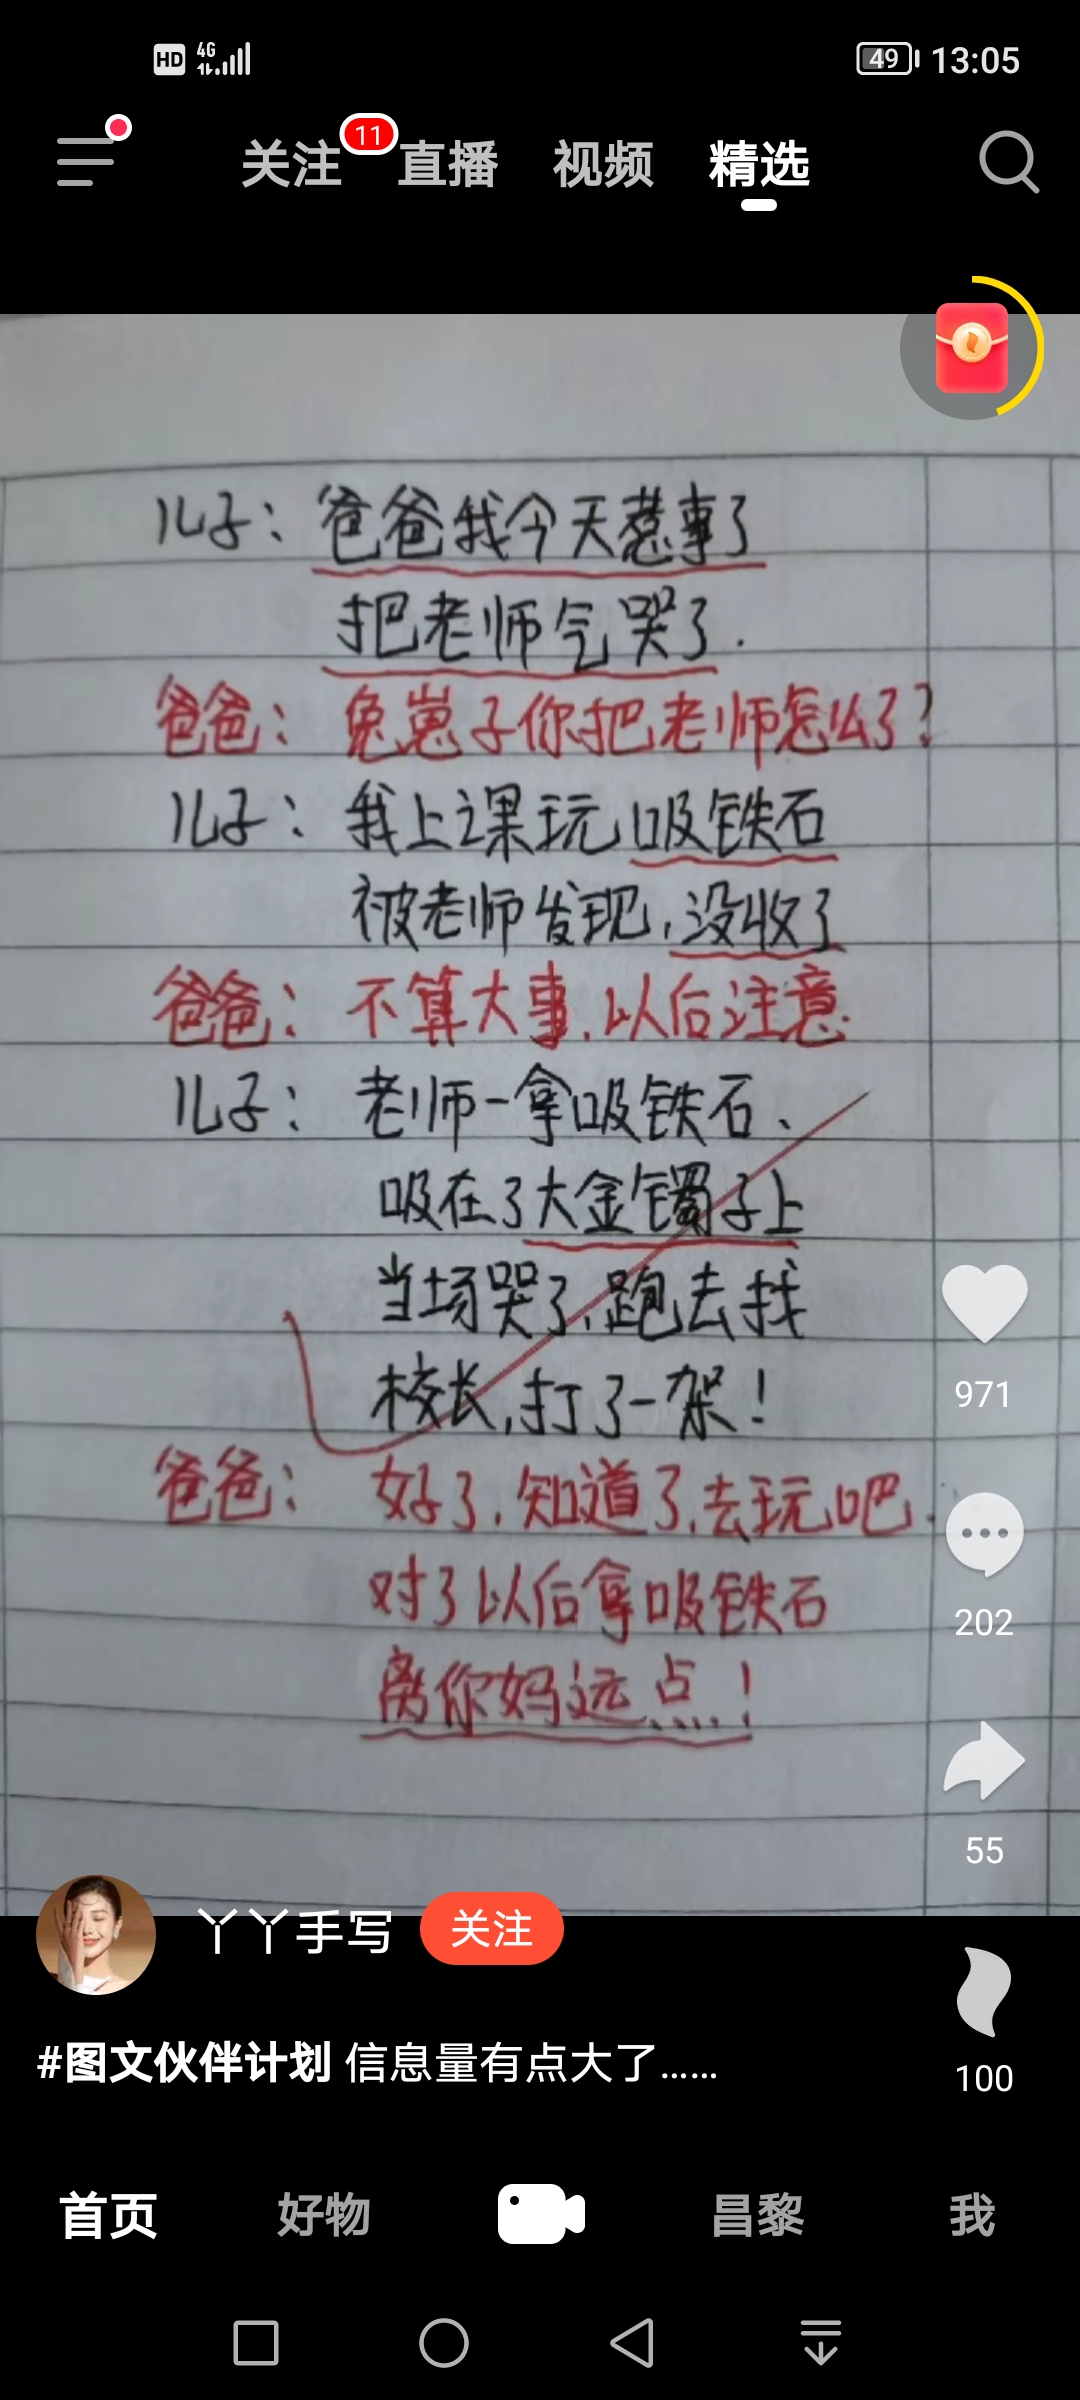 HD 4G 49 13:05
关注 11 直播 视频 精选
儿子：爸爸我今天惹事了
把老师气哭了.
爸爸：兔崽子你把老师怎么了？
儿子：我上课玩吸铁石
被老师发现,没收了
爸爸：不算大事.以后注意.
儿子：老师一拿吸铁石、
吸在了大金镯子上
当场哭了,跑去找
校长,打了一架！
爸爸：好了.知道了.去玩吧.
对了以后拿吸铁石
离你妈远点！
971
202
55
丫丫手写 关注
#图文伙伴计划 信息量有点大了......
100
首页 好物 昌黎 我